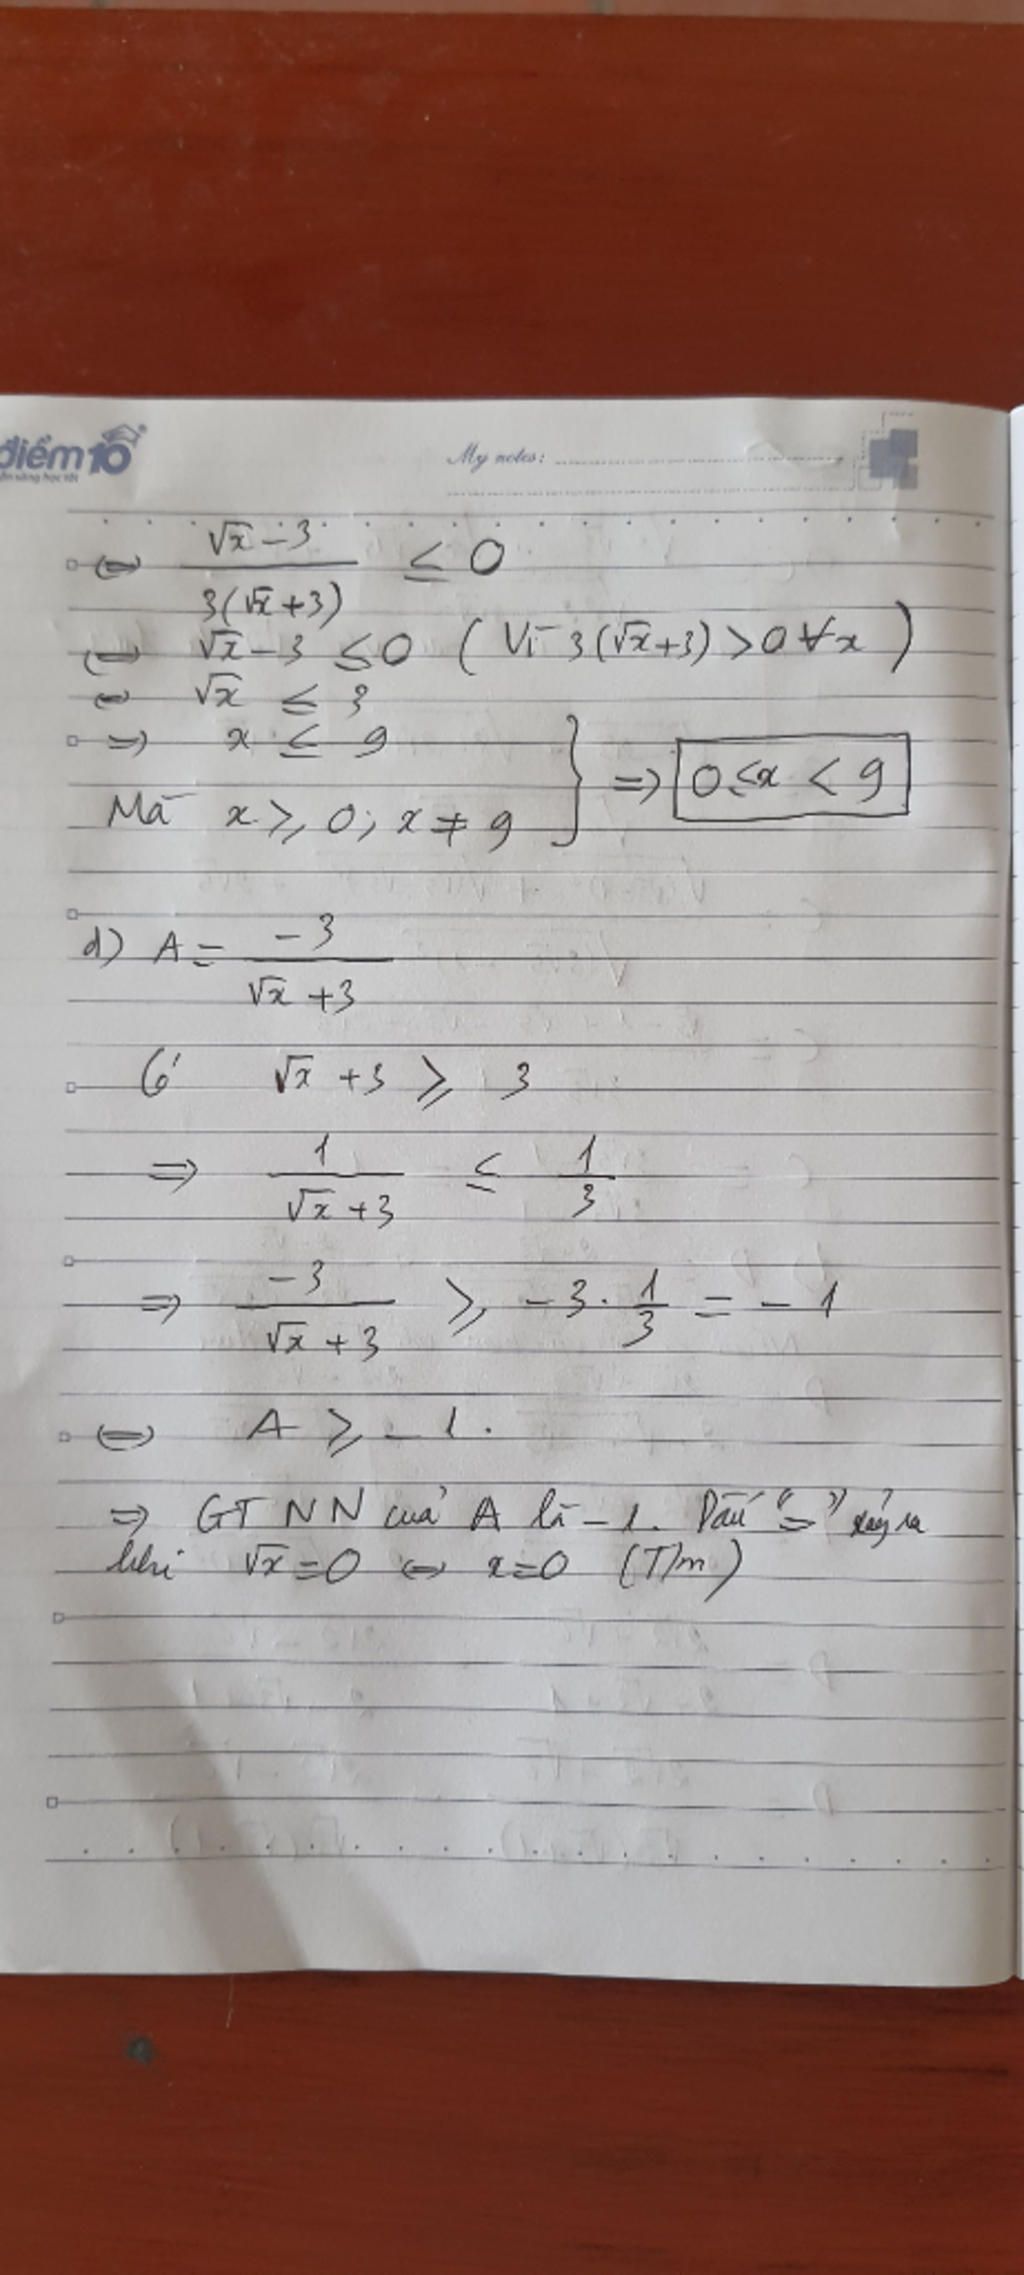 điểm10
My notes:
⇔ (√x - 3)/(3(√x + 3)) ≤ 0
⇔ √x - 3 ≤ 0 ( Vì 3(√x+3) > 0 ∀x )
⇔ √x ≤ 3
⇒ x ≤ 9
Mà x ≥ 0; x ≠ 9 } ⇒ 0 ≤ x < 9
d) A = -3/(√x + 3)
Có √x + 3 ≥ 3
⇒ 1/(√x + 3) ≤ 1/3
⇒ -3/(√x + 3) ≥ -3 · 1/3 = -1
⇔ A ≥ -1.
⇒ GTNN của A là -1. Dấu "=" xảy ra
khi √x = 0 ⇔ x = 0 (T/m)